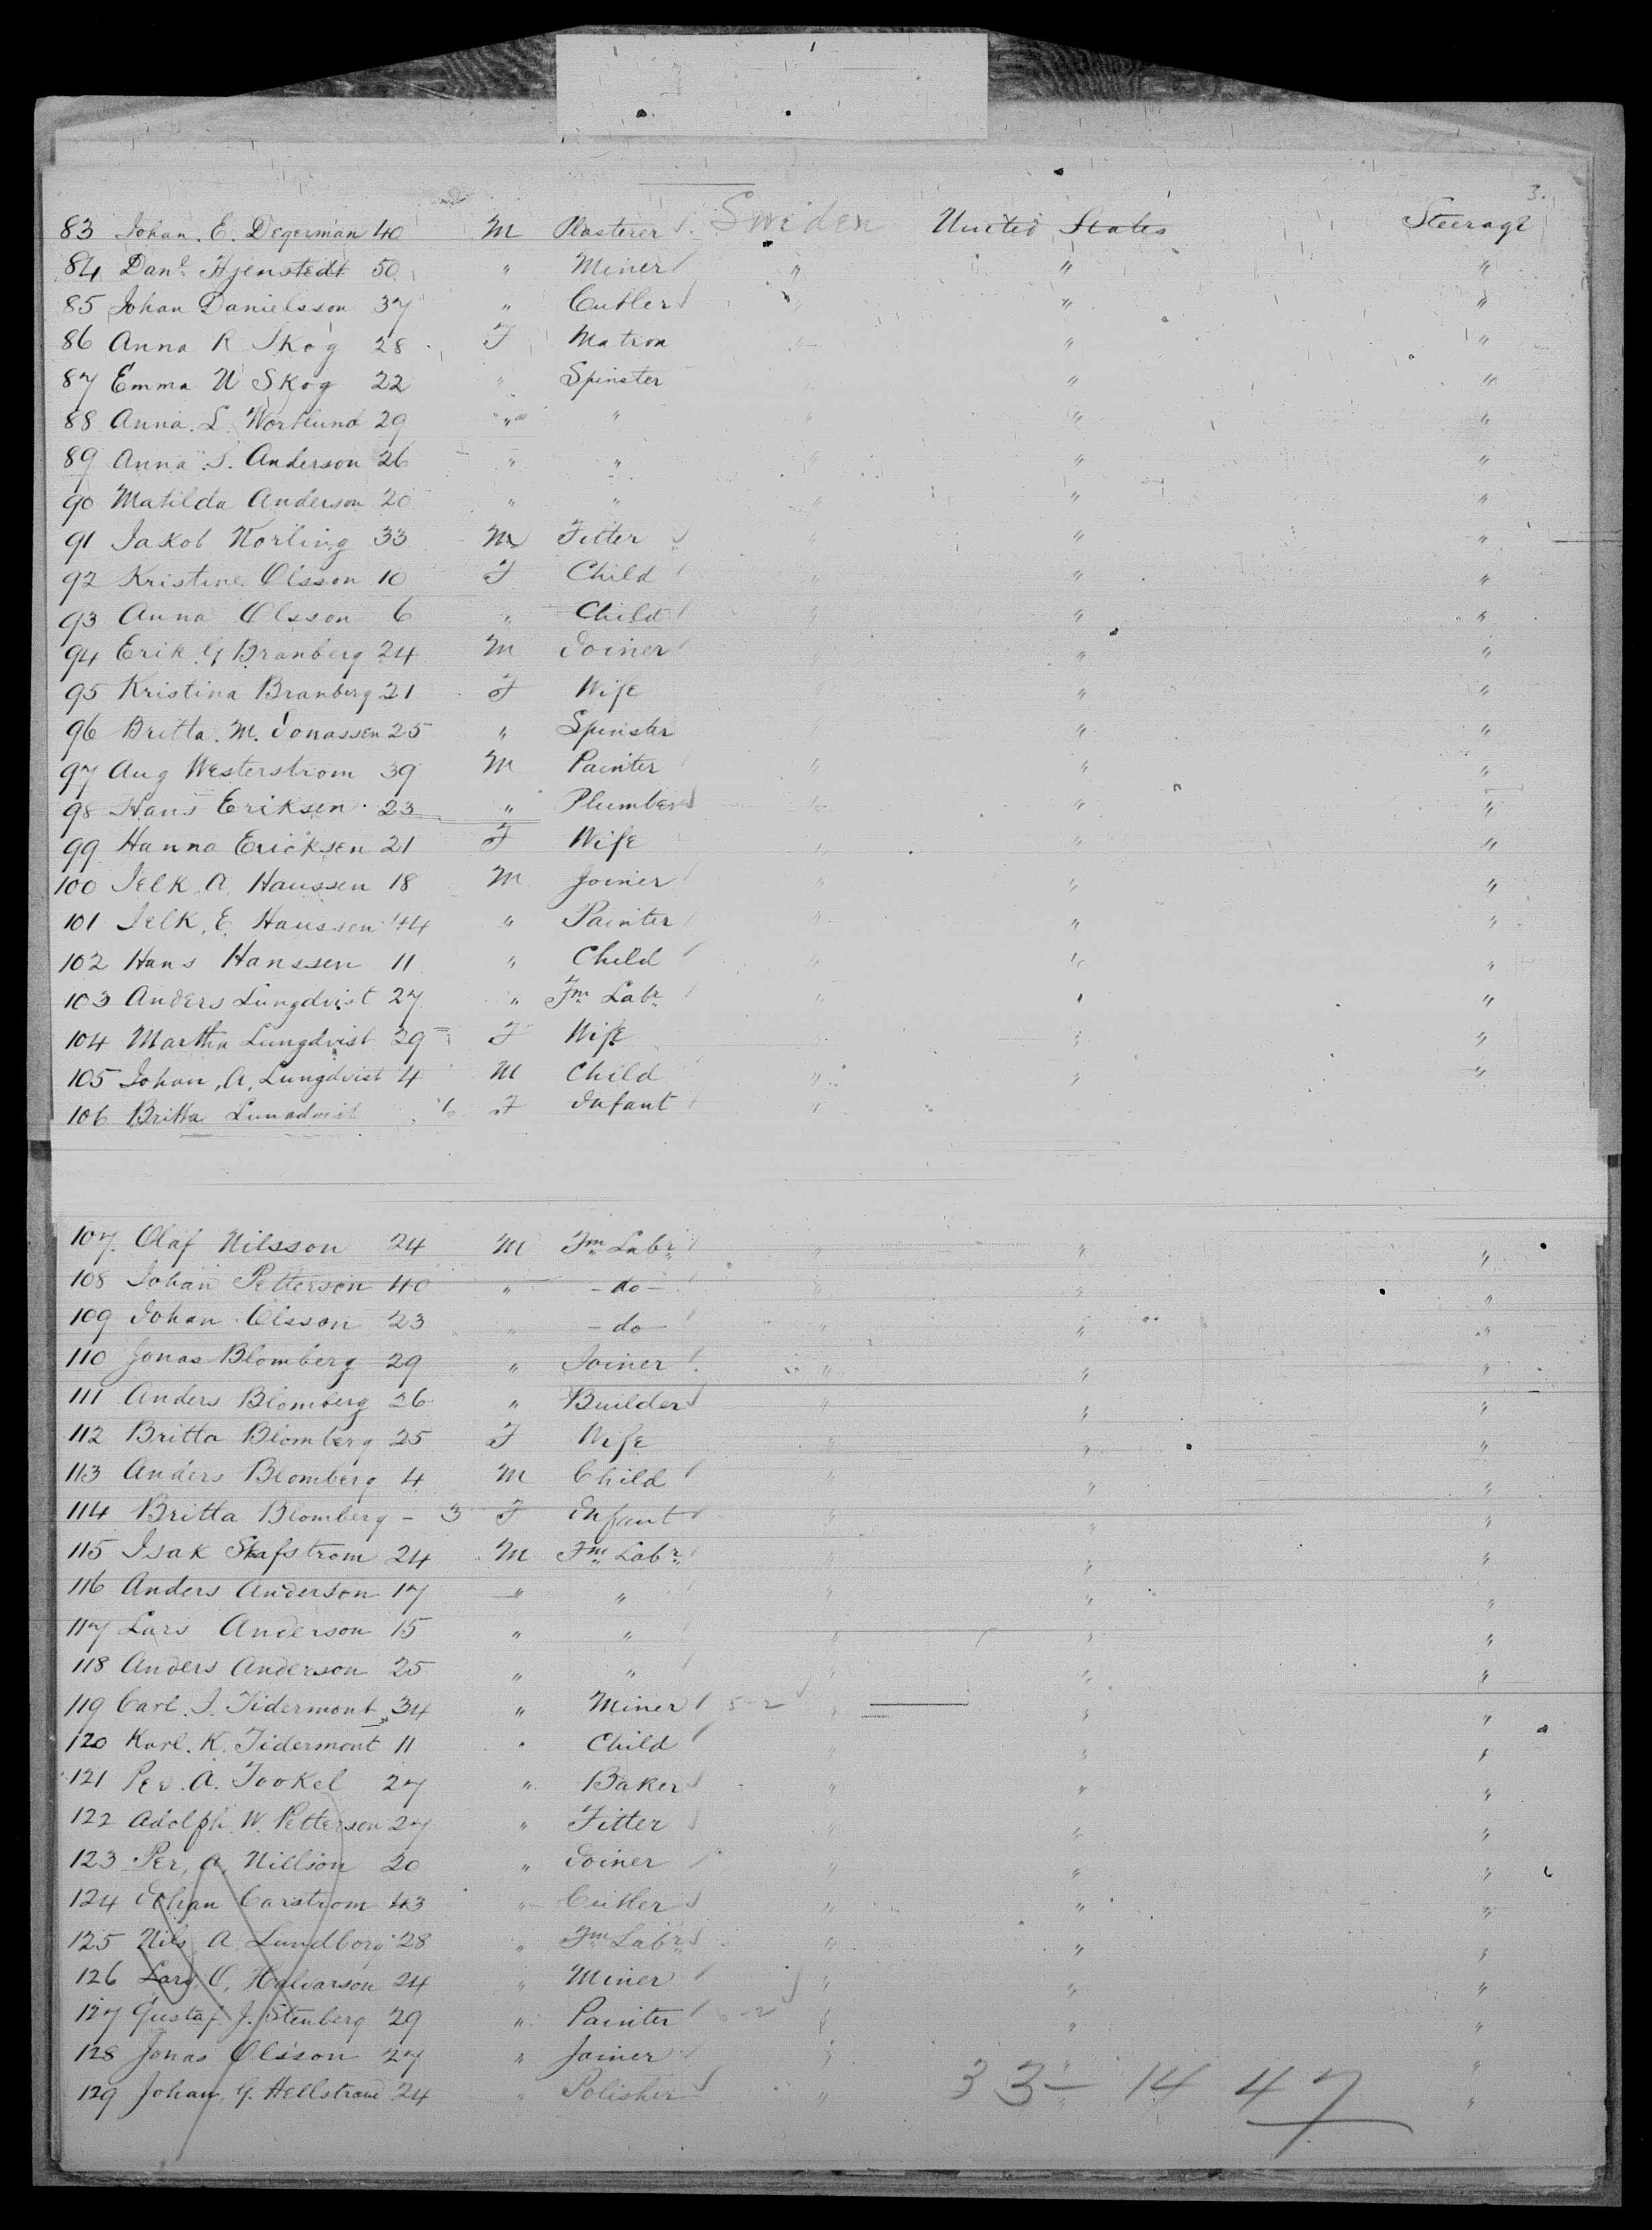 3.
83 Johan. E. Degerman 40 M Plasterer Sweden United States Steerage
84 Danl Hjenstedt 50 " Miner " " "
85 Johan Danielsson 37 " Cutler " " "
86 Anna R Skog 28 F Matron " " "
87 Emma U Skog 22 " Spinster " " "
88 Anna. L. Wortlund 29 " " " " "
89 Anna S. Anderson 26 " " " " "
90 Matilda Anderson 20 " " " " "
91 Jakob Norling 33 M Fitter " " "
92 Kristine Olsson 10 F Child " " "
93 Anna Olsson 6 " Child " " "
94 Erik G Branberg 24 M Joiner " " "
95 Kristina Branberg 21 F Wife " "
96 Britta. M. Jonassen 25 " Spinster " " "
97 Aug Westerstrom 39 M Painter " " "
98 Hans Eriksen 23 " Plumber " " "
99 Hanna Ericksen 21 F Wife " " "
100 Jelk. A. Haussen 18 M Joiner " " "
101 Jelk. E. Haussen 44 " Painter " " "
102 Hans Hanssen 11 " Child " " "
103 Anders Lungdvist 27 " Fm Labr " " "
104 Martha Lungdvist 29 F Wife " " "
105 Johan. A. Lungdvist 4 M Child " " "
106 Britta Lungdvist F Infant "
107. Olaf Nilsson 24 M Fm Labr " " "
108 Johan Petterson 40 " - do - " " "
109 Johan Olsson 23 " - do - " " "
110 Jonas Blomberg 29 " Joiner " " "
111 Anders Blomberg 26 " Builder " " "
112 Britta Blomberg 25 F Wife " " "
113 Anders Blomberg 4 M Child " " "
114 Britta Blomberg - 3 F Infant " " "
115 Isak Stafstrom 24 M Fm Labr " " "
116 Anders Anderson 17 " " " " "
117 Lars Anderson 15 " " " " "
118 Anders Anderson 25 " " " " "
119 Carl. J. Tidermont 34 " Miner 5-2 " " "
120 Karl. K. Tidermont 11 " Child " " "
121 Per. A. Tookel 27 " Baker " " "
122 Adolph. W. Petterson 27 " Fitter " " "
123 Per. A. Nillson 20 " Joiner " " "
124 Johan Carstrom 43 " Cutler " " "
125 Nils. A. Lundborg 28 " Fm Labr " " "
126 Lars. O. Halvarson 24 " Miner " " "
127 Gustaf. J. Stenberg 29 " Painter " " "
128 Jonas Olsson 27 " Joiner " " "
129 Johan. G. Hellstrand 24 " Polisher " " "
33 - 14 47